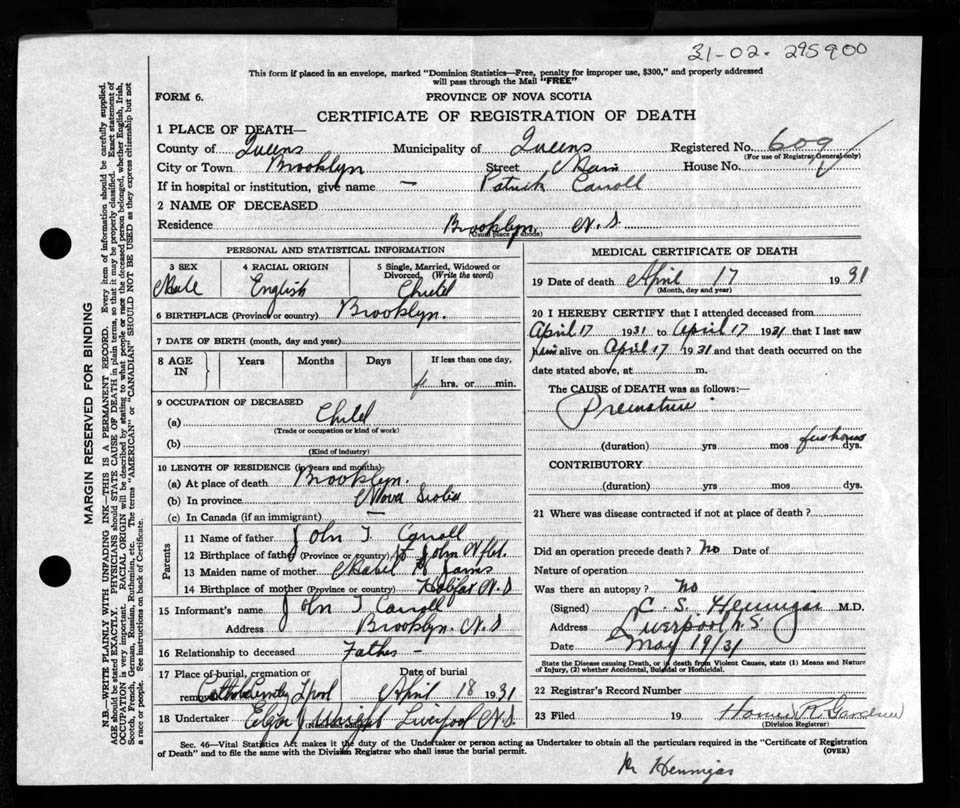 31-02- 295900
This form if placed in an envelope, marked "Dominion Statistics—Free, penalty for improper use, $300," and properly addressed
will pass through the Mail "FREE"
FORM 6. PROVINCE OF NOVA SCOTIA
CERTIFICATE OF REGISTRATION OF DEATH
1 PLACE OF DEATH—
County of Queens Municipality of Queens Registered No. 609
(For use of Registrar General only)
City or Town Brooklyn Street Main House No.
If in hospital or institution, give name — Patrick Carroll
2 NAME OF DECEASED
Residence Brooklyn, N.S.
(Usual place of abode)
PERSONAL AND STATISTICAL INFORMATION
3 SEX 4 RACIAL ORIGIN 5 Single, Married, Widowed or
Divorced, (Write the word)
Male English Child
6 BIRTHPLACE (Province or country) Brooklyn.
7 DATE OF BIRTH (month, day and year)
8 AGE IN Years Months Days If less than one day,
hrs. or min.
9 OCCUPATION OF DECEASED
(a) Child
(Trade or occupation or kind of work)
(b)
(Kind of industry)
10 LENGTH OF RESIDENCE (in years and months)
(a) At place of death Brooklyn.
(b) In province Nova Scotia
(c) In Canada (if an immigrant) —
Parents
11 Name of father John T. Carroll
12 Birthplace of father (Province or country) St John Nfld.
13 Maiden name of mother Mabel
14 Birthplace of mother (Province or country) Halifax N.S
15 Informant's name John T Carroll
Address Brooklyn. N.S
16 Relationship to deceased Father -
17 Place of burial, cremation or removal Date of burial
April 18 1931
18 Undertaker Liverpool N.S.
(Name and address)
MEDICAL CERTIFICATE OF DEATH
19 Date of death April 17 1931
(Month, day and year)
20 I HEREBY CERTIFY that I attended deceased from
April 17 1931 to April 17 1931 that I last saw
him alive on April 17 1931 and that death occurred on the
date stated above, at m.
The CAUSE of DEATH was as follows:—
Premature
(duration) yrs mos few hours dys.
CONTRIBUTORY
(duration) yrs mos dys.
21 Where was disease contracted if not at place of death?
Did an operation precede death? No Date of
Nature of operation
Was there an autopsy? No
(Signed) C. S. Hennigar M.D.
Address Liverpool N.S
Date May 19/31
State the Disease causing Death, or in death from Violent Causes, state (1) Means and Nature
of Injury, (2) whether Accidental, Suicidal or Homicidal.
22 Registrar's Record Number
23 Filed 19 Homer R. Gardner
(Division Registrar)
Sec. 46—Vital Statistics Act makes it the duty of the Undertaker or person acting as Undertaker to obtain all the particulars required in the "Certificate of Registration
of Death" and to file the same with the Division Registrar who shall issue the burial permit. (OVER)
Dr Hennigar
MARGIN RESERVED FOR BINDING
N.B.—WRITE PLAINLY WITH UNFADING INK—THIS IS A PERMANENT RECORD. Every item of information should be carefully supplied.
AGE should be stated EXACTLY. PHYSICIANS should STATE CAUSE OF DEATH in plain terms, so that it may be properly classified. Exact statement of
OCCUPATION is very important. RACIAL ORIGIN will be described by stating to what people or race the deceased person belonged, whether English, Irish,
Scotch, French, German, Russian, Ruthenian, etc. The terms "AMERICAN" or "CANADIAN" SHOULD NOT BE USED as they express citizenship but not
a race or people. See instructions on back of Certificate.